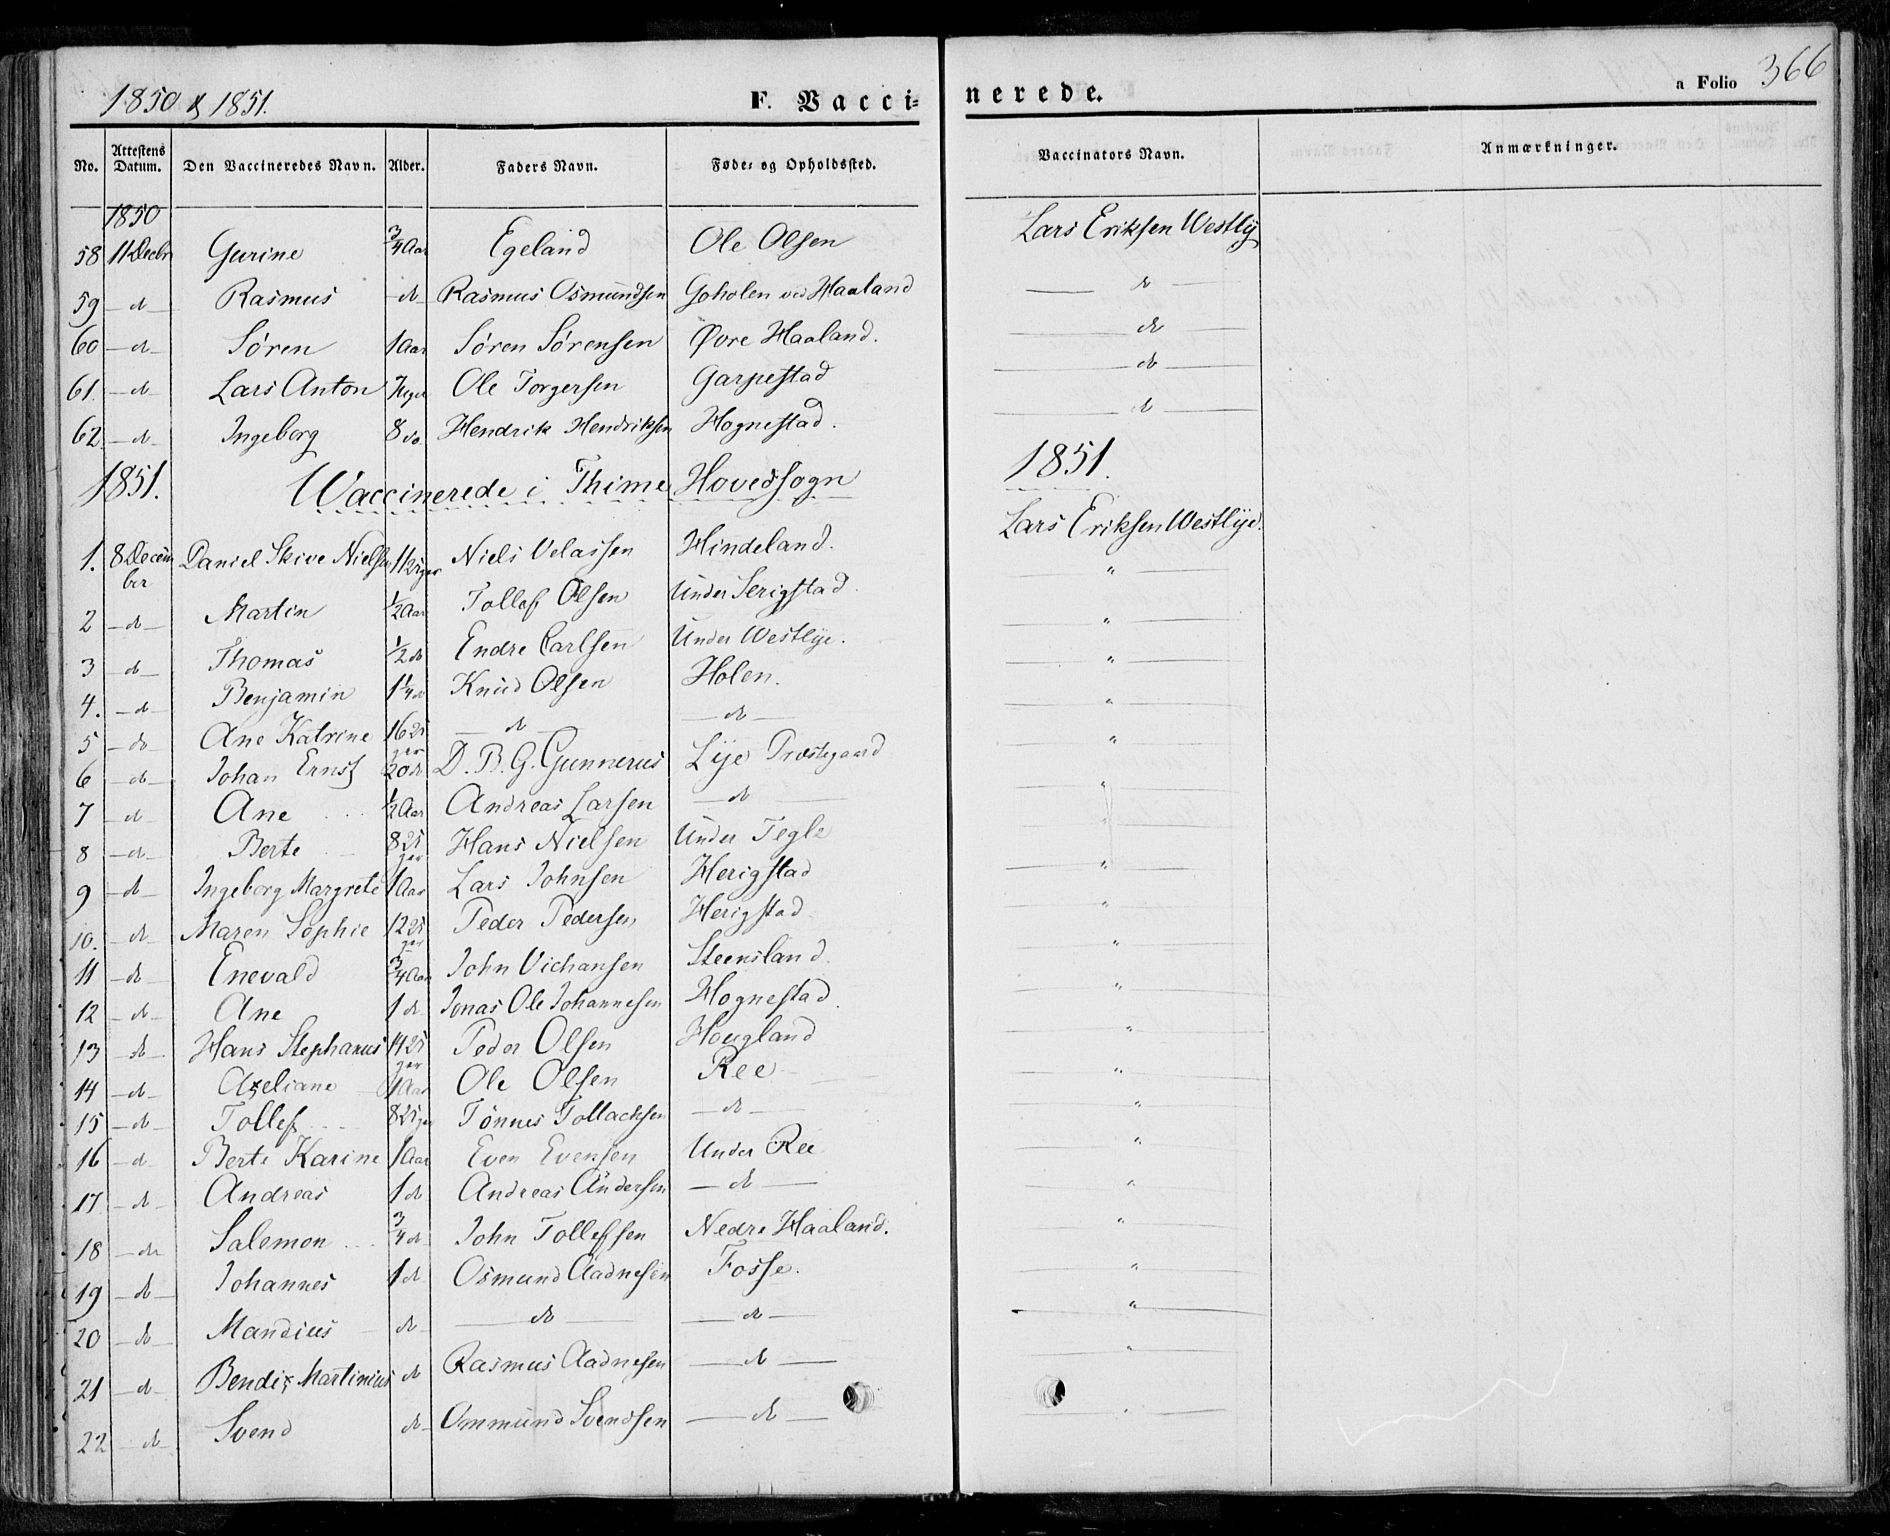 1850 & 1851.
F. Vacci=
nerede.
a Folio 366
No. Attestens Datum. Den Vaccineredes Navn. Alder. Faders Navn. Føde= og Opholdssted. Vaccinators Navn. Anmærkninger.
1850
58 11 Decbr Gurine 3/4 Aar Egeland Ole Olsen Lars Eriksen Westly
59 — d — Rasmus — d Rasmus Osmundsen Goholen ved Haaland — d —
60 — d — Søren 1 Aar Søren Sørensen Øvre Haaland. — d —
61. — d — Lars Anton Ole Torgersen Garpestad — d —
62. — d — Ingeborg 8 do Hendrik Hendriksen Hognestad. — d —
1851. Vaccinerede i Thime Hovedsogn 1851.
Lars Eriksen Westlye.
1. 8 Decem Daniel Skive Nielsen Niels Velassen Hindeland. "
ber
2 — d — Martin 1/2 Aar Tollef Olsen Under Serigstad. "
3 — d — Thomas 1/2 d Endre Carlsen Under Westlye. "
4. — d Benjamin 1 1/4 d Knud Olsen Holen. "
5 — do Ane Katrine — d — — d — "
6 — d — Johan Ernst 20 d D. B. G. Gunnerus Lye Præstegaard "
7 — d — Ane 1/2 Aar Andreas Larsen — d — "
8 — d — Berte Hans Nielsen Under Tegle "
9 — d — Ingeborg Margrete 1 Aar Lars Johnsen Herigstad "
10. — d Maren Sophie Peder Pedersen Herigstad "
11 — d — Enevald 3/4 Aar John Vichansen Steensland. "
12 — d — Ane 1 d Jonas Ole Johannesen Hognestad. "
13 — d — Hans Stephanus Peder Olsen Hougland "
14 — d — Axeliane 1 Aar Ole Olsen Ree "
15 — d — Tollef Tønnes Tollacksen — d — "
16 — d — Berte Karine 1 Aar Even Evensen Under Ree "
17 — d — Andreas 1 d Andreas Andersen — d — "
18 — do Salemon 3/4 d John Tollefsen Nedre Haaland. "
19 — d — Johannes 1 d Osmund Aadnesen Fosse. "
20 — d — Mandius d — d — — d — "
21 — d — Bendix Martinius d Rasmus Aadnesen — d — "
22 — d — Svend d Ommund Svendsen — d — "